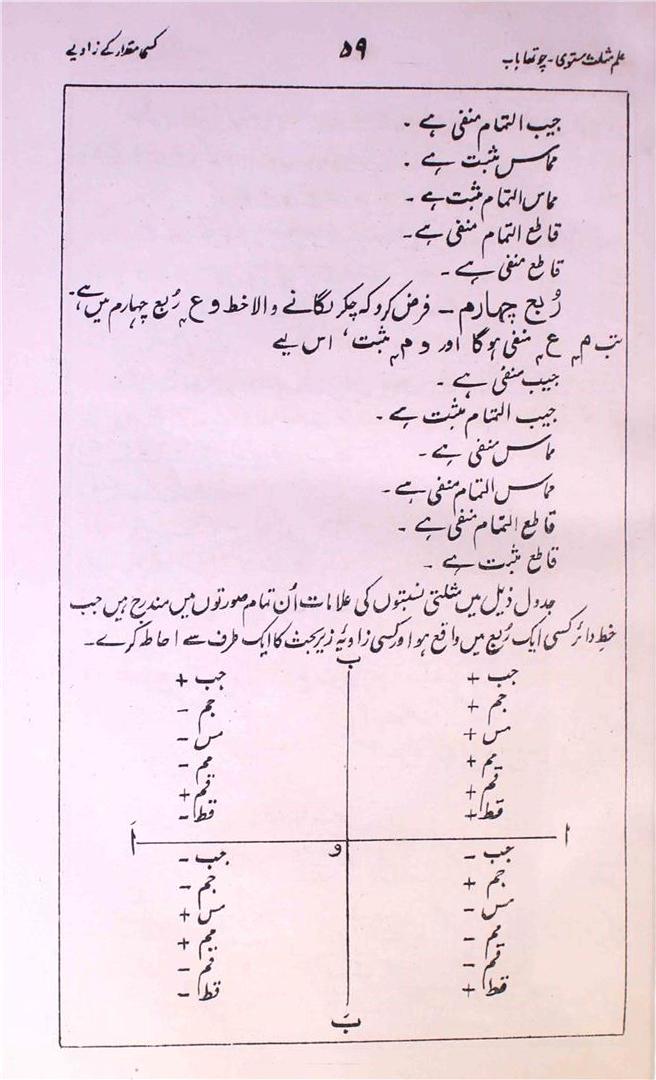 علم مثلث مستوی - چوتھا باب ۵۹ کسی مقدار کے زاویے
جیب التمام منفی ہے ۔
مماس مثبت ہے ۔
مماس التمام مثبت ہے ۔
قاطع التمام منفی ہے ۔
قاطع منفی ہے ۔
رُبع چہارم ــ فرض کرو کہ چکر لگانے والا خط و ع۴ رُبع چہارم میں ہے ۔
تب م۴ ع۴ منفی ہوگا اور و م۴ مثبت ، اس لیے
جیب منفی ہے ۔
جیب التمام مثبت ہے ۔
مماس منفی ہے ۔
مماس التمام منفی ہے ۔
قاطع التمام منفی ہے ۔
قاطع مثبت ہے ۔
جدول ذیل میں مثلثی نسبتوں کی علامات اُن تمام صورتوں میں مندرج ہیں جب
خطِ دائر کسی ایک رُبع میں واقع ہو اور کسی زاویۂ زیر بحث کا ایک طرف سے احاطہ کرے ۔
ب
جب + جب +
جم + جم −
مس + مس −
مم + مم −
قم + قم +
قط + قط −
ا و اَ
جب − جب −
جم + جم −
مس − مس +
مم − مم +
قم − قم −
قط + قط −
بَ